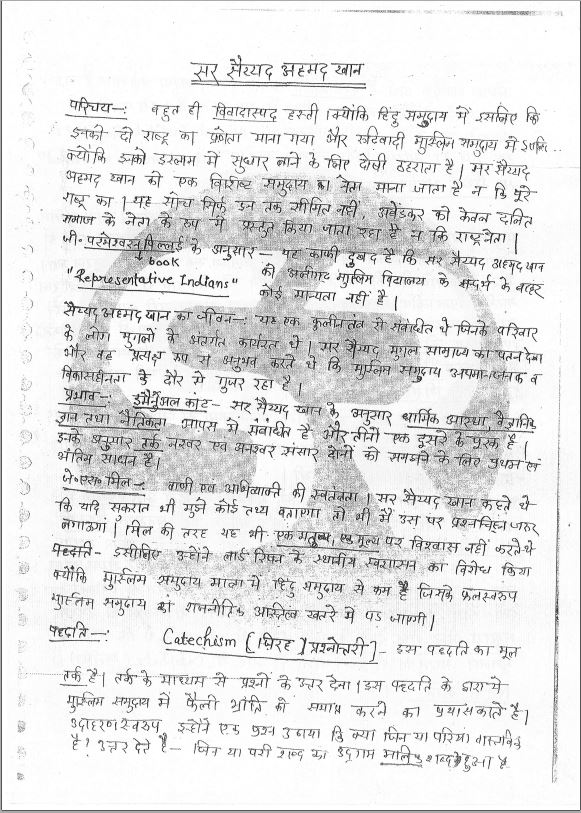 सर सैय्यद अहमद खान
परिचय-: बहुत ही विवादास्पद हस्ती। क्योंकि हिंदु समुदाय में इसलिए कि
इनको दो राष्ट्र का प्रणेता माना गया और रुढिवादी मुस्लिम समुदाय में इसलिए
क्योंकि इनको इस्लाम में सुधार लाने के लिए दोषी ठहराता है। सर सैय्यद
अहमद खान को एक विशिष्ट समुदाय का नेता माना जाता है न कि पूरे
राष्ट्र का। यह सोच सिर्फ इन तक सीमित नहीं, अंबेडकर को केवल दलित
समाज के नेता के रूप में प्रस्तुत किया जाता रहा है न कि राष्ट्रनेता।
जी. परमेश्वरन पिल्लई के अनुसार - यह काफी दुखद है कि सर सैय्यद अहमद खान
book
की अलीगढ़ मुस्लिम विद्यालय के सन्दर्भ के बाहर
"Representative Indians"
कोई मान्यता नहीं है।
सैय्यद अहमद खान का जीवन-: यह एक कुलीनतंत्र से संबंधित थे जिनके परिवार
के लोग मुगलों के अंतर्गत कार्यरत थे। सर सैय्यद मुगल साम्राज्य का पतन देखा
और वह प्रत्यक्ष रूप से अनुभव करते थे कि मुस्लिम समुदाय अपमानजनक व
विकासहीनता के दौर से गुजर रहा है।
प्रभाव-: इमैनुअल कांट - सर सैय्यद खान के अनुसार धार्मिक आस्था, वैज्ञानिक
ज्ञान तथा नैतिकता आपस में संबंधित है और तीनों एक दूसरे के पूरक है।
इनके अनुसार तर्क नश्वर एवं अनश्वर संसार दोनों को समझने के लिए प्रथम एवं
अंतिम साधन है।
जे. एस. मिल-: वाणी एवं अभिव्यक्ति की स्वतंत्रता। सर सैय्यद खान कहते थे
कि यदि सुकरात भी मुझे कोई तथ्य बताएगा तो भी मैं उस पर प्रश्नचिह्न जरूर
लगाऊंगा। मिल की तरह यह भी एक मनुष्य, एक मूल्य पर विश्वास नहीं करते थे
पद्धति- इसीलिए उन्होंने लार्ड रिपन के स्थानीय स्वशासन का विरोध किया
क्योंकि मुस्लिम समुदाय मात्रा में हिंदु समुदाय से कम है जिसके फलस्वरूप
मुस्लिम समुदाय का राजनीतिक अस्तित्व खतरे में पड़ जाएगी।
पद्धति-: Catechism (जिरह) प्रश्नोत्तरी - इस पद्धति का मूल
तर्क है। तर्क के माध्यम से प्रश्नों के उत्तर देना। इस पद्धति के द्वारा ये
मुस्लिम समुदाय में फैली भ्रांति को समाप्त करने का प्रयास करते है।
उदाहरणस्वरूप इन्होंने एक प्रश्न उठाया कि क्या जिन या परियां वास्तविक
है? उत्तर देते है - जिन या परी शब्द का उद्गम शब्द से हुआ है